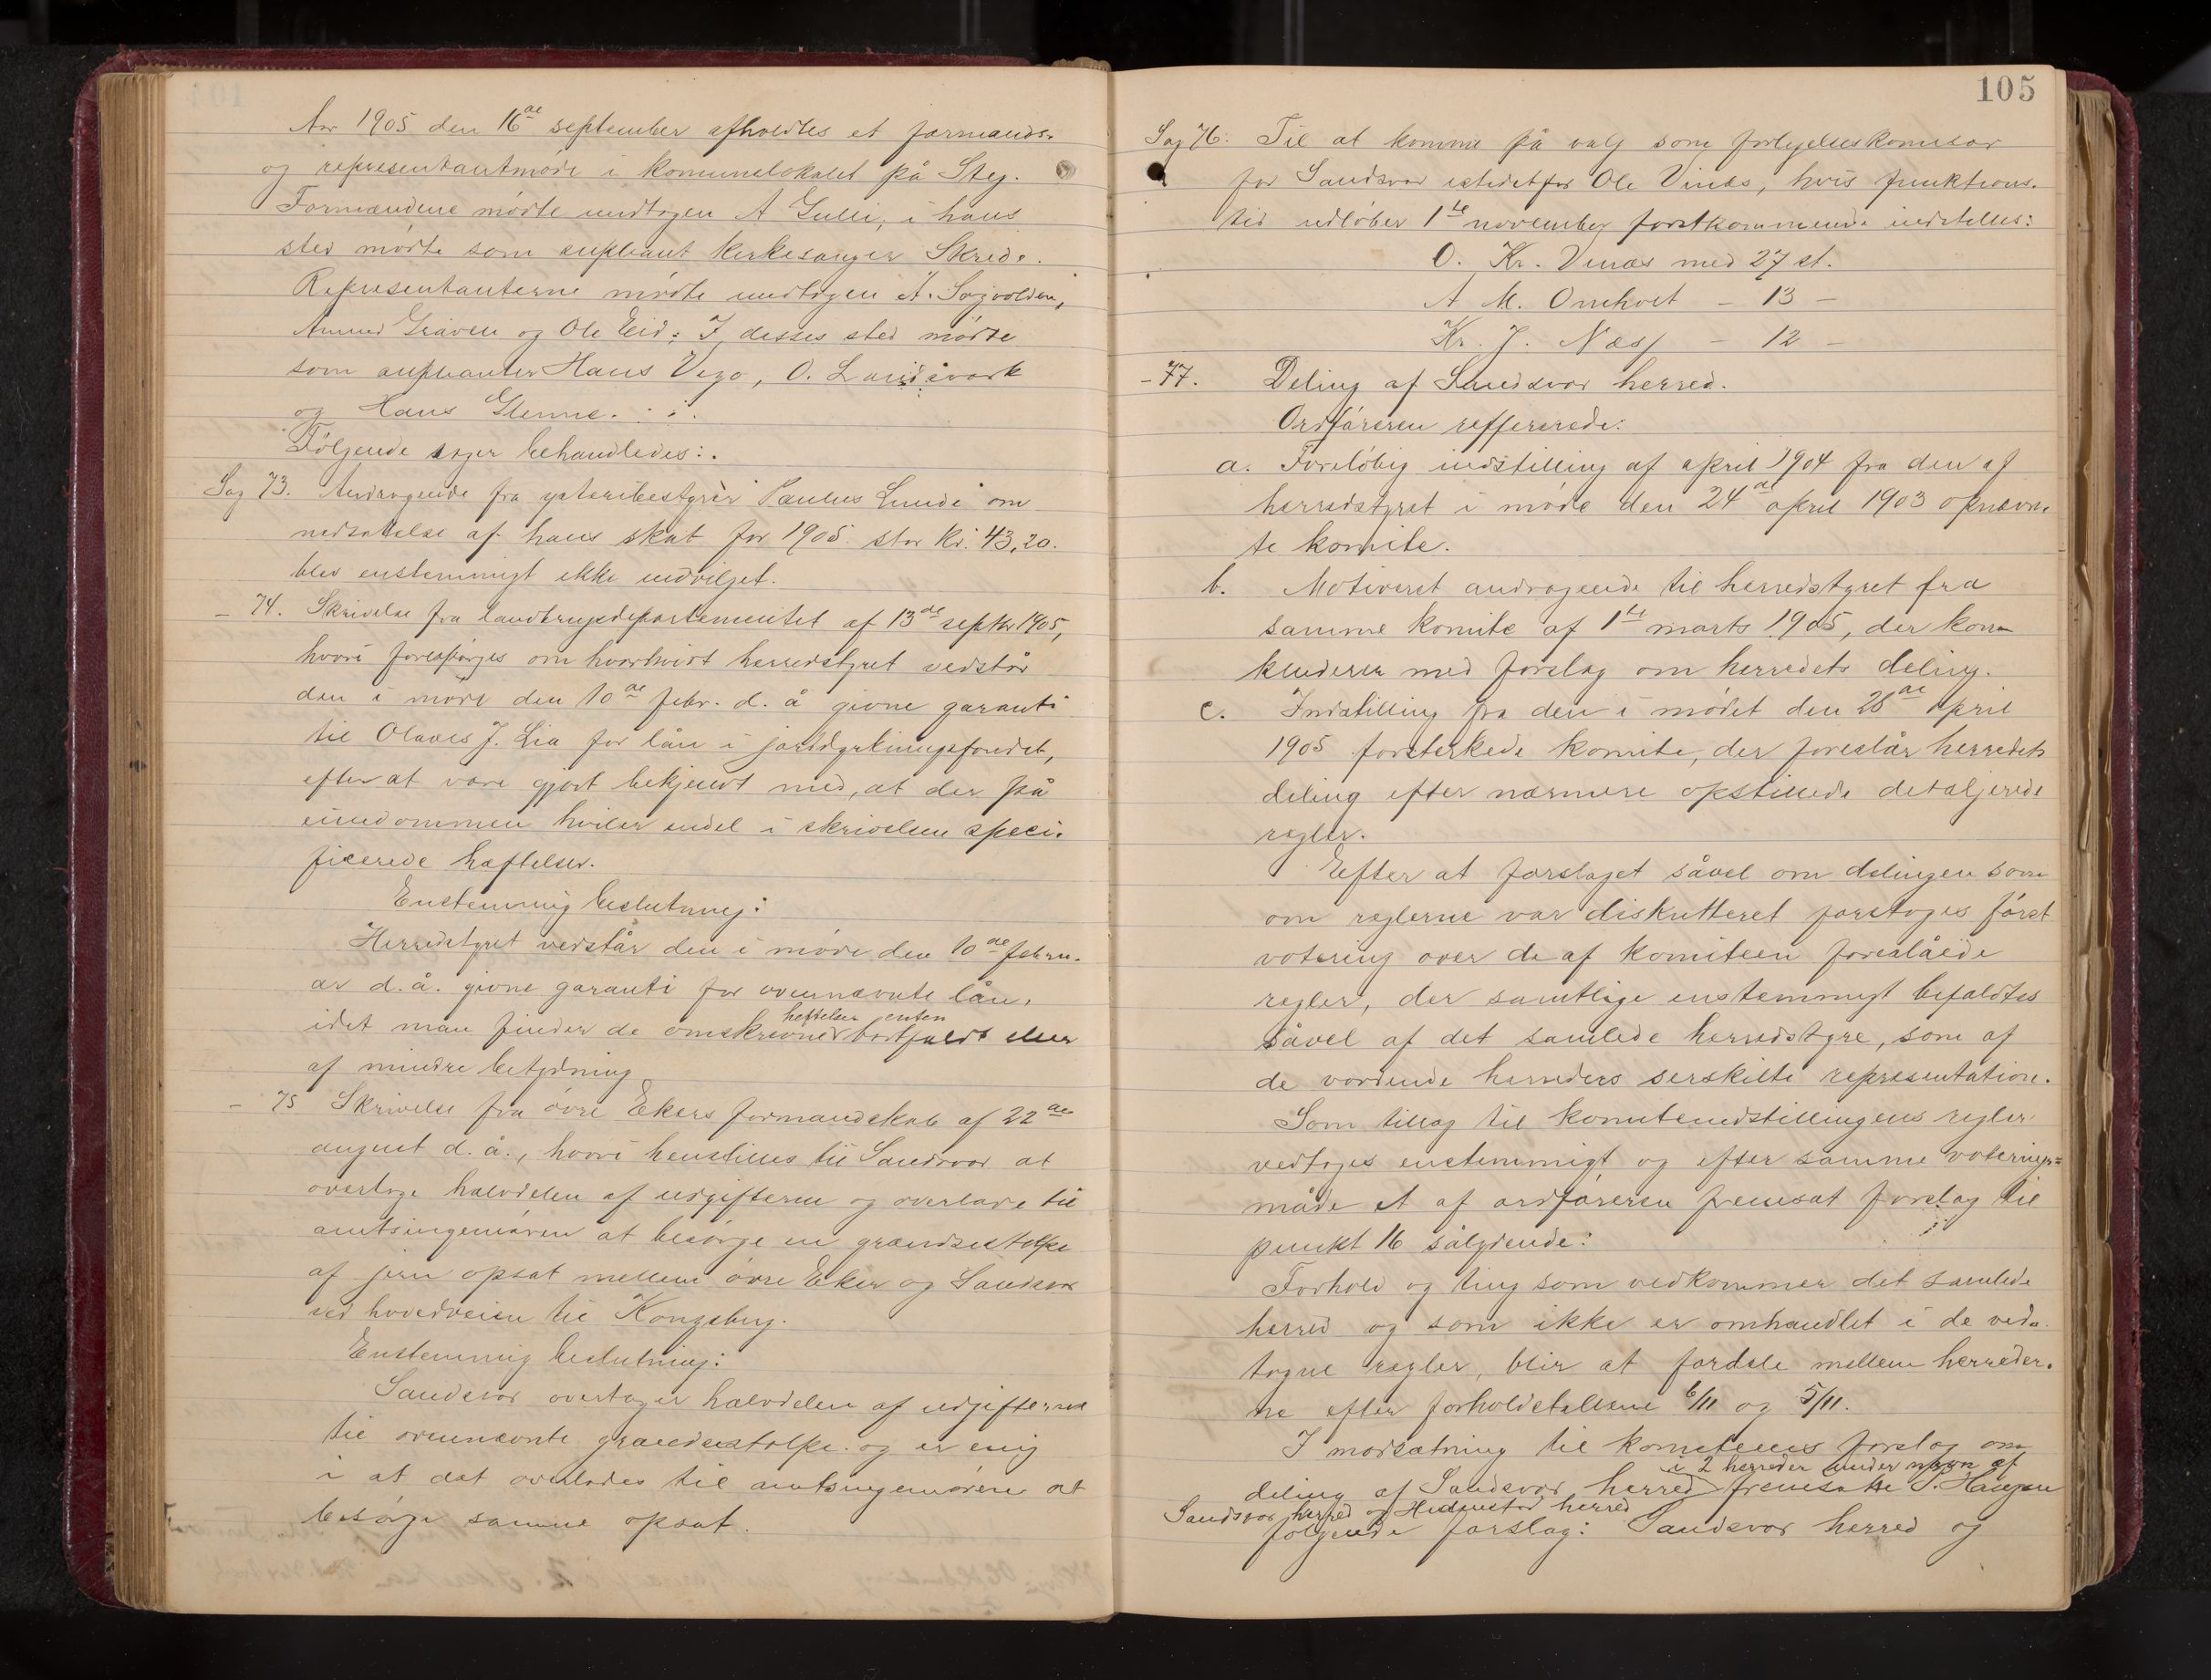 Aar 1905 den 16de september afholdtes et formands-
og representantmøde i komunelokalet på Steg.
Formændene mødte undtagen A Gulli, i hans
sted mødte som supleant kirkesanger Skrede.
Representanterne mødte undtagen A. Sagvolden,
Amund Graven og Ole Eid. I disses sted mødte
som supleanter Hans Vego, O. Landsværk
og Hans Glenne.
Følgende sager behandledes:
Sag 73. Andragende fra ysteribestyrer Paulus Lunde om
nedsættelse af hans skat for 1905 stor kr. 43,20.
blev enstemmigt ikke indvilget.
– 74. Skrivelse fra landbrugsdepartementet af 13de septbr 1905,
hvori forespørges om hvorhvidt herredstyret vedstår
den i møde den 10de febr. d. å givne garanti
til Olaves J. Lia for lån i jorddyrkningsfondet,
efter at være gjort bekjendt med, at der på
eiendommen hviler endel i skrivelsen speci-
ficerede hæftelser.
Enstemmig beslutning:
Herredstyret vedstår den i møde den 10de febru-
ar d. å. givne garanti for ovennævnte lån,
idet man finder de omskrevne heftelser enten bortfaldt eller
af mindre betydning
– 75 Skrivelse fra øvre Ekers formandskab af 22de
august d. å., hvori henstilles til Sandsvær at
overtage halvdelen af udgifterne og overlade til
amtsingeniøren at besørge en grændsestolpe
af jern opsat mellem øvre Eker og Sandsvær
ved hovedveien til Kongsberg.
Enstemmig beslutning:
Sandsvær overtager halvdelen af udgifterne
til ovennævnte grændsestolpe og er enig
i at det overlades til amtsingeniøren at
besørge samme opsat.
105
Sag 76. Til at komme på valg som forligelseskomisær
for Sandsvær istedetfor Ole Vinæs, hvis funktions-
tid udløber 1ste november førstkommende indstilles:
O. Kr. Vinæs med 27 st.
A. M. Omholt – 13 –
Kr. J. Næss – 12 –
– 77. Deling af Sandsvær herred.
Ordføreren reffererede:
a. Foreløbig indstilling af april 1904 fra den af
herredstyret i møde den 24de april 1903 opnævn-
te komite.
b. Motiveret andragende til herredstyret fra
samme komite af 1ste marts 1905, der kon-
kluderer med forslag om herredets deling.
c. Indstilling fra den i mødet den 28de april
1905 forsterkede komite, der foreslår herredets
deling efter nærmere opstillede detaljerede
regler.
Efter at forslaget såvel om delingen som
om reglerne var diskutteret foretoges først
votering over de af komiteen foreslåede
regler, der samtlige enstemmigt befaldtes
såvel af det samlede herredstyre, som af
de vordende herreders serskilte representation.
Som tillæg til komiteindstillingens regler
vedtoges enstemmigt og efter samme voterings=
måde et af ordføreren fremsat forslag til
punkt 16 sålydende:
Forhold og ting som vedkommer det samlede
herred og som ikke er omhandlet i de ved-
tagne regler, blir at fordele mellem herreder-
ne efter forholdstallene 6/11 og 5/11.
I modsætning til komiteens forslag om
deling af Sandsvær herred i 2 herreder under navn af
Sandsvær herred og Hedenstad herred fremsatte S. Haugen
følgende forslag: Sandsvær herred og